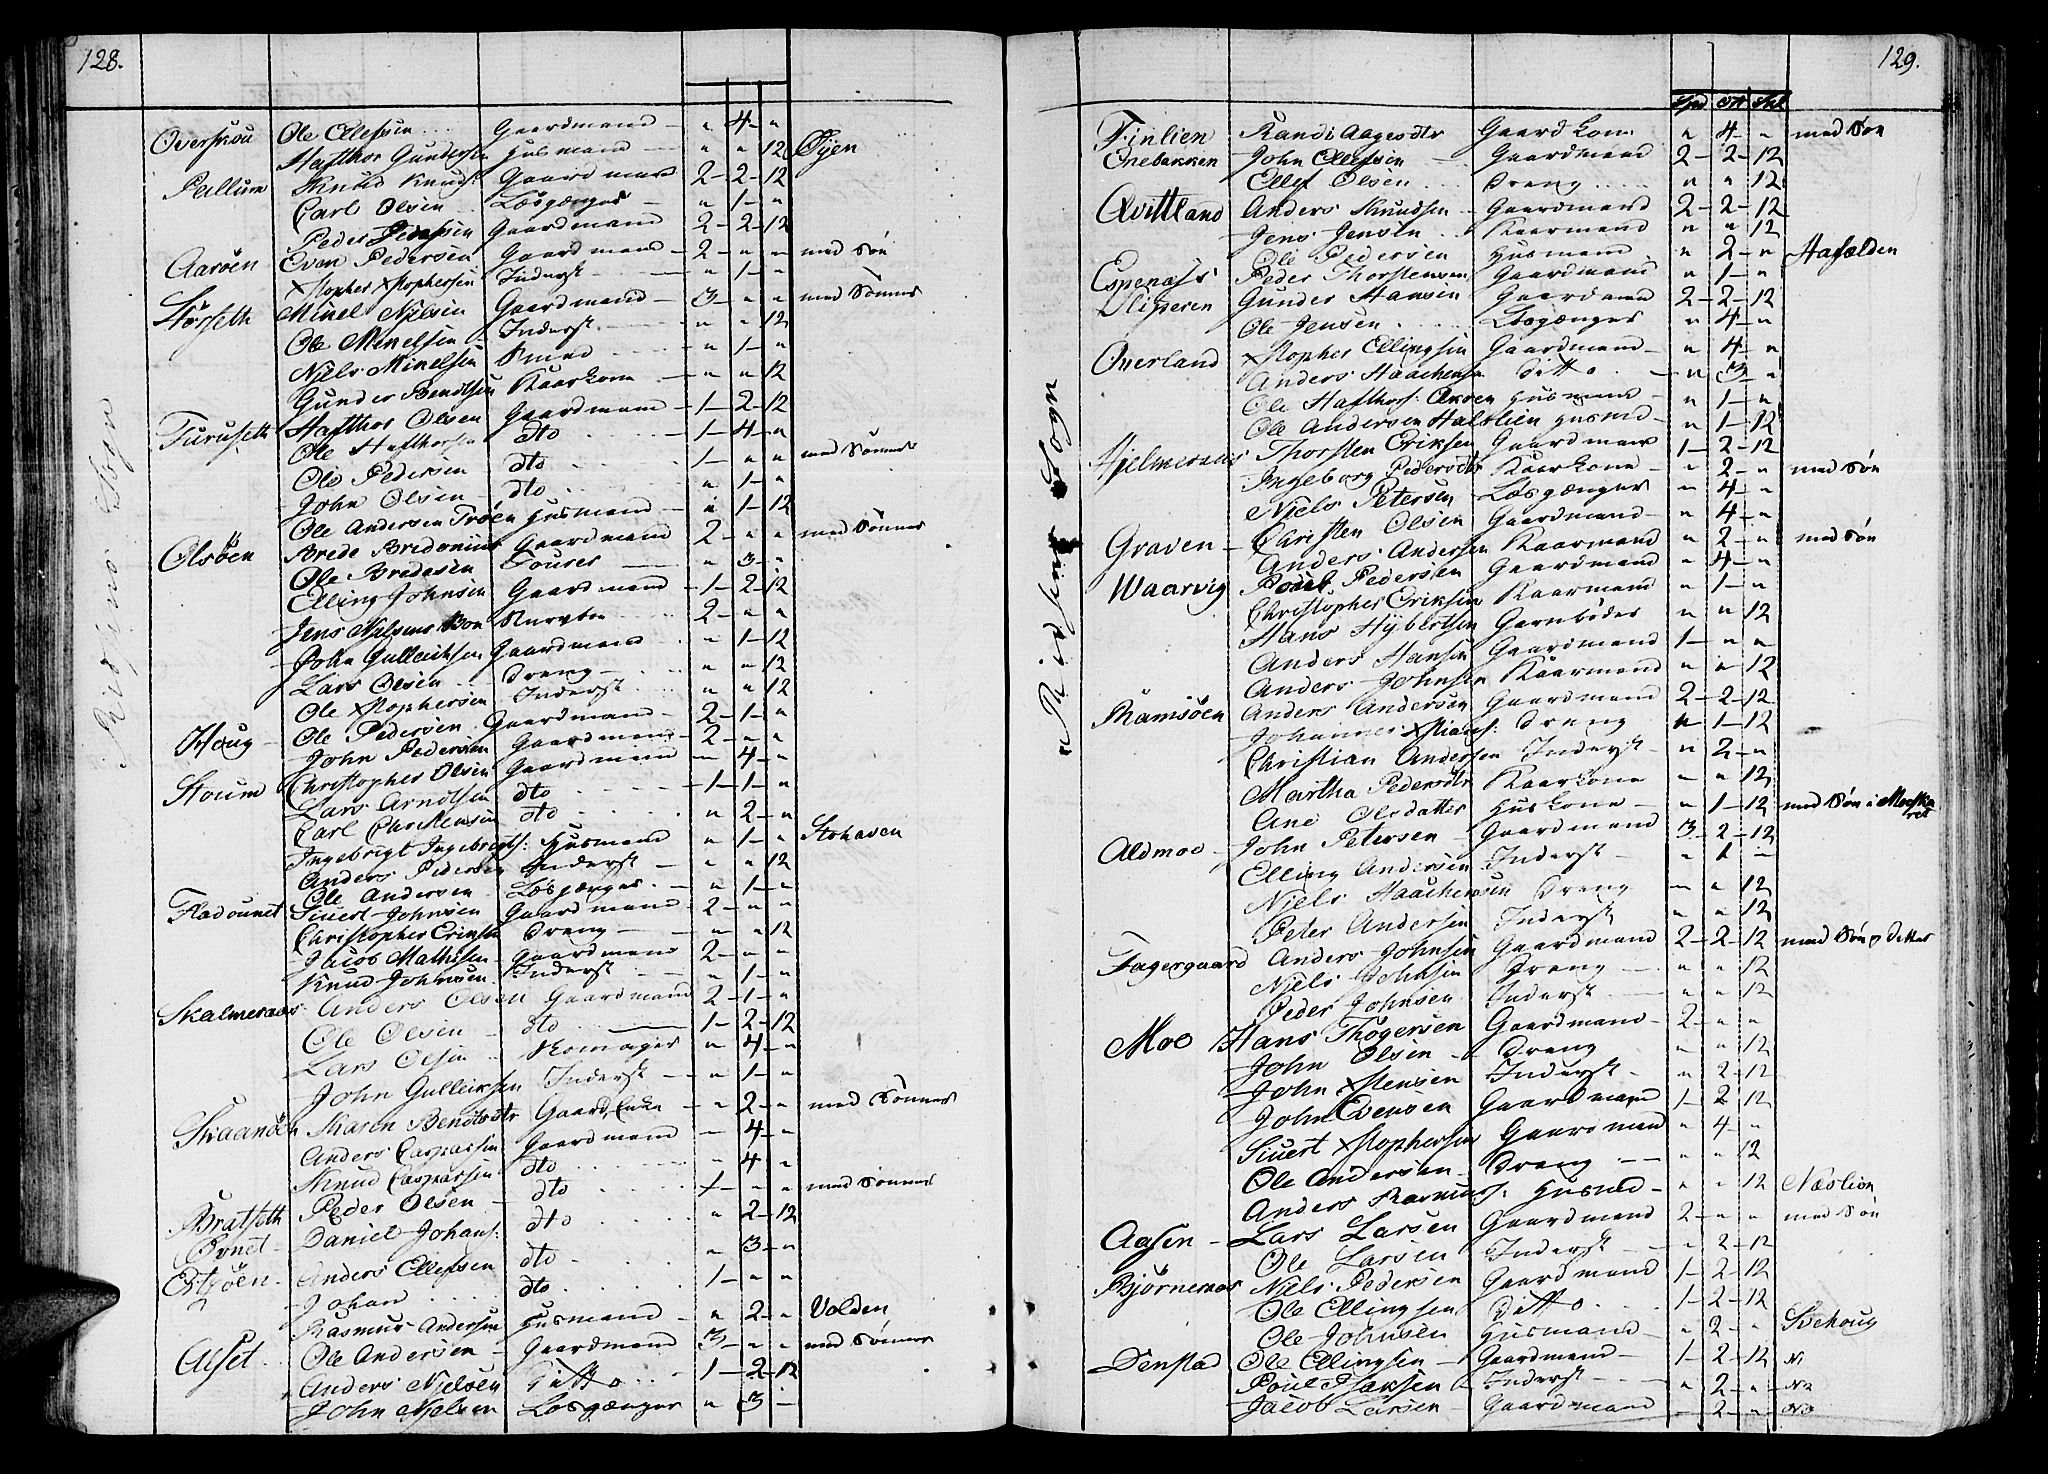 128.
Ridsins Sogn
Overskou Ole Ellefsen Gaardmand " 4 "
Hafthor Gundersen Husmand " " 12 Øyen
Pallum Knud Knuds: Gaardmand 2 - 2 - 12
Carl Olsen Løsgænger " 1 - "
Peder Pedersen Gaardmand 2 - 2 - 12
Aarøen Even Pedersen Gaardmand 2 - " " med Søn
Xstopher Xstophersen Inderst " 1 - "
Størseth Mikel Nielsen Gaardmand 3 - " " med Sønner
Ole Mikelsen Inderst " " 12
Niels Mikelsen Smed " 1 - "
Gunder Bendtsen Kaarkone " " 12
Furuseth Hafthor Olsen Gaardmand 1 - 2 - 12
Ole Hafthorsen dto 1 - 4 - "
Ole Pedersen dto 1 - " " med Sønner
John Olsen dto " 1 - "
Ole Andersen Trøen Husmand " 1 - 12
Olsøen Brede Gaardmand 2 - " " med Sønner
Ole Bredesen " 3 - "
Elling Johnsen Gaardmand 1 - 2 - 12
Jens 2 - " "
John Gulleiksen Gaardmand " 1 - 12
Lars Olsen Dreng " " 12
Ole Xstophersen Inderst " " 12
Houg Ole Pedersen Gaardmand 2 - 1 - "
John Pedersen Gaardmand 2 - " "
Stoum Christopher Olsen Gaardmand - 4 - "
Lars Arndtsen dto 1 - 1 - "
Carl Christensen dto " 2 - "
Ingebrigt Ingebrigts: Husmand " 1 - " Stohaven
Anders Pedersen Inderst " " 12
Ole Andersen Løsgænger " 1 - "
Fladsunet Siuert Johnsen Gaardmand 2 - " "
Christopher Eriksen Dreng " " 12
Jacob Mathisen Gaardmand 2 - " "
Knud Johnsen Inderst " 1 - "
Skalmeraas Anders Olsen Gaardmand 2 - 1 - "
Ole Olsen dto 1 - 2 - 12
Lars Olsen Skomager " 4 - "
John Gulleiksen Inderst " 1 - "
Skaanøen Karen Bendtsdtr Gaard Enke " 2 - " med Sønner
Anders Casparsen Gaardmand - 4 - "
Knud Casparsen dto 4 - "
Bratseth Peder Olsen dto 1 - " " med Sønner
Ovnet Daniel Johans: dto " 2 - 12
Anders Ellefsen dto " 3 - "
Johan dto 1 - " "
Rasmus Andersen Husmand " 2 - " Volden
Alset Ole Andersen Gaardmand 3 - " " med Sønner
Anders Njelsen Ditto 1 - 2 - 12
John Njelsen Løsgænger " 3 -
129.
Sogn
Spd Ort Skl
Finlien Randi Aagesdtr Gaardkon: " 4 - " med Søn
Enebakken John Ellefsen Gaardmand 2 - 2 - 12
Ellef Olsen Dreng " " 12
Qvittland Anders Knudsen Gaardmand 2 - 2 - 12
Jens Jensen Kaarmand " " 12
Ole Pedersen Husmand " 2 - " Hafælden
Espenæss Peder Thorstensen Gaardmand " 1 - "
Vliperen Gunder Hansen Gaardmand 2 - 2 - 12
Ole Jensen Løsgænger " 4 - "
Overland Xstopher Ellingsen Gaardmand " 4 - "
Anders Haachensen Ditto " 3 - "
Ole Hafthors: Husmand " 1 - "
Ole Andersen Halslien Husmd " 1 - 12
Hjelmeraas Thorsten Eriksen Gaardmand 1 - 2 - 12
Ingeborg Pedersdtr Kaarkone " 2 - " med Søn
Niels Petersen Løsgænger " 4 - "
Graven Christen Olsen Gaardmand " 4 - "
Anders Andersen Kaarmand " 2 - " med Søn
Waarvig Poul Pedersen Gaardmand " 4 - "
Christopher Eriksen Kaarmand " 1 - "
Hans Hybertsen Garnbøder " " 12
Anders Hansen Gaardmand 1 - " "
Anders Johnsen Kaarmand " " 12
Ramsøen Anders Andersen Gaardmand 2 - 2 - 12
Johannes Xstians: Dreng " 1 - 12
Christian Andersen Inderst " 2 - "
Martha Pedersdtr Kaarkone " " 12
Ane Olsdatter Huskone " 1 - 12 med Søn i
Aldmoe John Petersen Gaardmand 3 - 2 - 12
Elling Andersen Inderst " 1 -
Niels Haachensen Dreng " " 12
Peter Andersen Inderst " " 12
Fagergaard Anders Johnsen Gaardmand 2 - 2 - 12 med Søn og Datter
Niels Johnsen Dreng " " 12
Peder Johnsen Inderst " " 12
Moe Hans Thøgersen Gaardmand 2 - " "
John Olsen Dreng " " 12
John Xstensen Inderst " 2 - 12
John Evensen Gaardmand 1 - 2 - 12
Siuert Xstophersen Gaardmand " 4 - "
Ole Andersen Dreng " " 12
Anders Rasmus: Husmd " " 12 Næslien
Aasen Lars Larsen Gaardmand 2 - " " med Søn
Ole Larsen Inderst " 2 - 12
Bjørneraas Niels Pedersen Gaardmand 1 - 2 - 12
Ole Ellingsen Ditto 1 - 2 - 12
Ole Johnsen Husmand " 2 - " Svehoug
Denstad Ole Ellingsen Gaardmand 1 - 2 - 12 N1
Poul Isaksen Inderst " 2 - " N2
Jacob Larsen Gaardmand - 2 - " N3